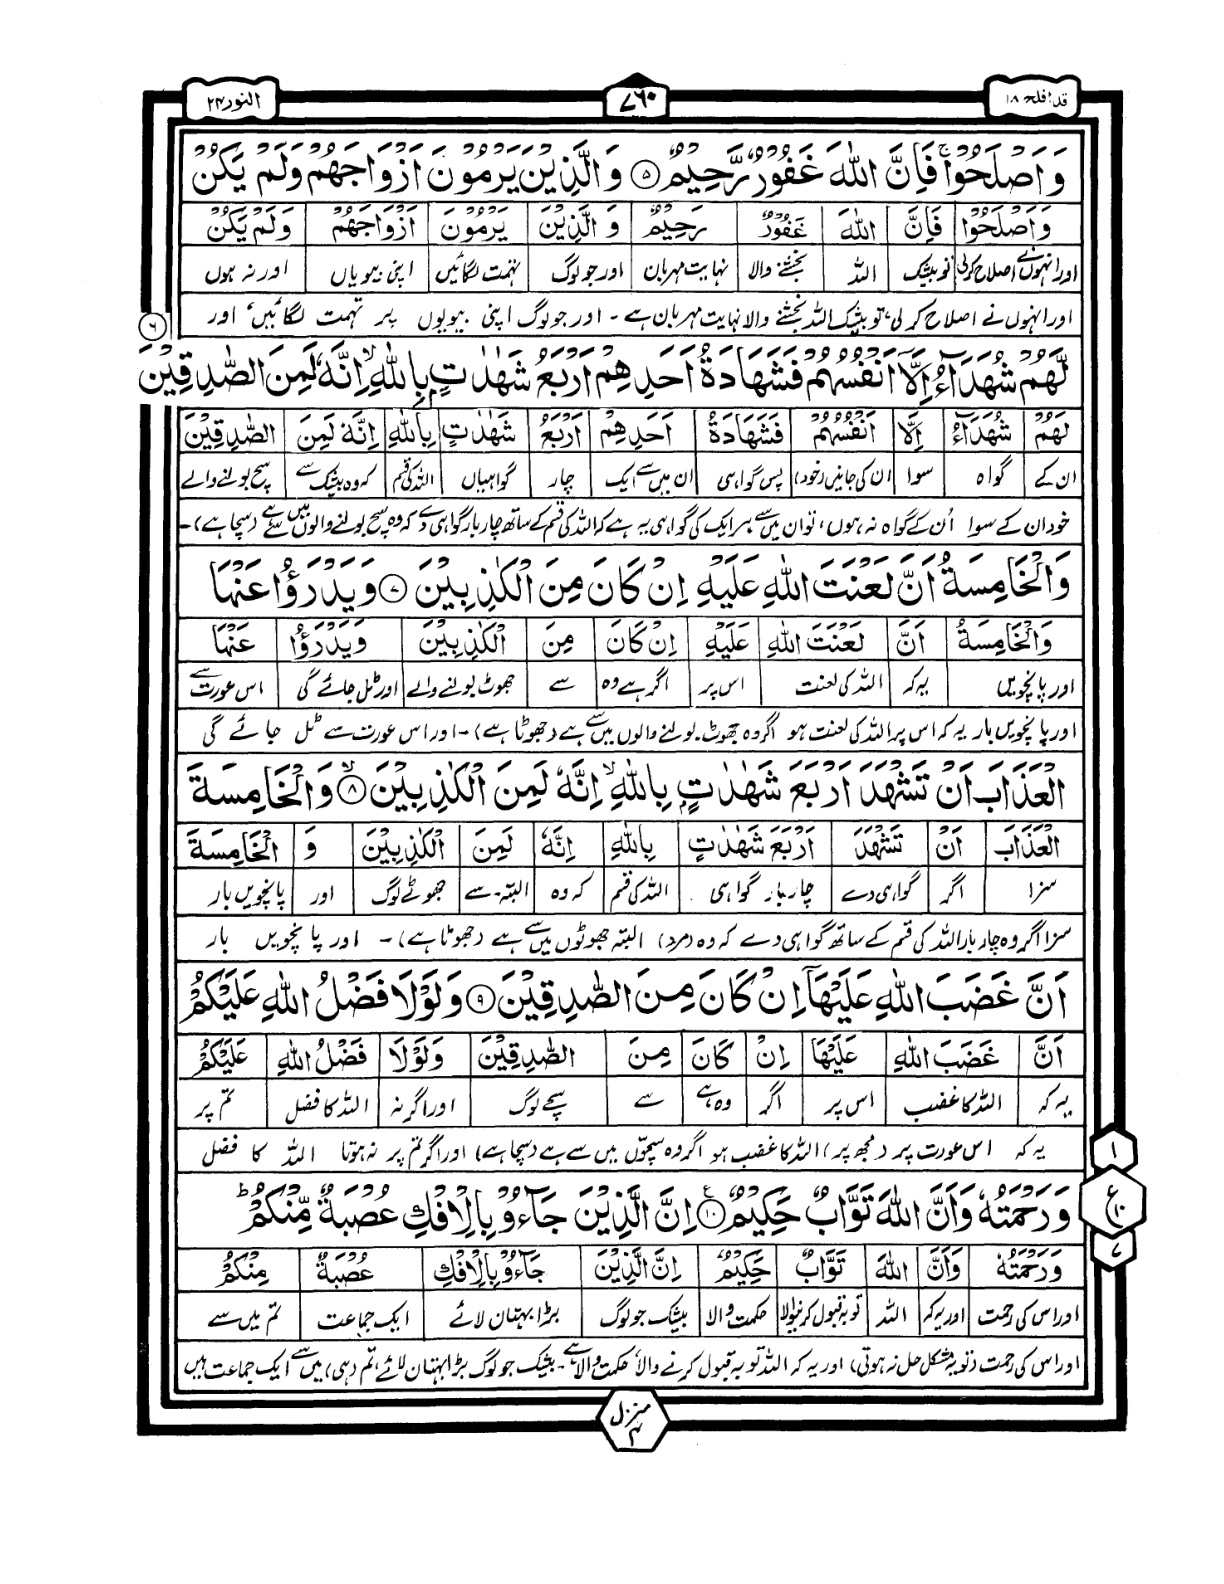 قد افلح ۱۸
۷۶۰
النور ۲۴
وَاَصْلَحُوْا ۚ فَاِنَّ اللّٰهَ غَفُوْرٌ رَّحِيْمٌ ۵ وَالَّذِيْنَ يَرْمُوْنَ اَزْوَاجَهُمْ وَلَمْ يَكُنْ
وَاَصْلَحُوْا فَاِنَّ اللّٰهَ غَفُوْرٌ رَحِيْمٌ وَ الَّذِيْنَ يَرْمُوْنَ اَزْوَاجَهُمْ وَلَمْ يَكُنْ
اور انہوں نے اصلاح کرلی تو بیشک اللہ بخشنے والا نہایت مہربان اور جو لوگ تہمت لگائیں اپنی بیویاں اور نہ ہوں
اور انہوں نے اصلاح کر لی، تو بیشک اللہ بخشنے والا نہایت مہربان ہے ۔ اور جو لوگ اپنی بیویوں پر تہمت لگائیں، اور
۶
لَّهُمْ شُهَدَآءُ اِلَّآ اَنْفُسُهُمْ فَشَهَادَةُ اَحَدِهِمْ اَرْبَعُ شَهٰدٰتٍۭ بِاللّٰهِ ۙ اِنَّهٗ لَمِنَ الصّٰدِقِيْنَ
لَهُمْ شُهَدَآءُ اِلَّا اَنْفُسُهُمْ فَشَهَادَةُ اَحَدِهِمْ اَرْبَعُ شَهٰدٰتٍ بِاللّٰهِ اِنَّهٗ لَمِنَ الصّٰدِقِيْنَ
ان کے گواہ سوا ان کی جانیں (خود) پس گواہی ان میں سے ایک چار گواہیاں اللہ کی قسم کہ وہ بیشک سے سچ بولنے والے
خود ان کے سوا اُن کے گواہ نہ ہوں، تو ان میں سے ہر ایک کی گواہی یہ ہے کہ اللہ کی قسم کے ساتھ چار بار گواہی دے کہ وہ سچ بولنے والوں میں سے ہے (سچا ہے)۔
وَالْخَامِسَةُ اَنَّ لَعْنَتَ اللّٰهِ عَلَيْهِ اِنْ كَانَ مِنَ الْكٰذِبِيْنَ ۷ وَيَدْرَؤُا عَنْهَا
وَالْخَامِسَةُ اَنَّ لَعْنَتَ اللّٰهِ عَلَيْهِ اِنْ كَانَ مِنَ الْكٰذِبِيْنَ وَيَدْرَؤُا عَنْهَا
اور پانچویں یہ کہ اللہ کی لعنت اس پر اگر ہے وہ سے جھوٹ بولنے والے اور ٹل جائے گی اس عورت سے
اور پانچویں بار یہ کہ اس پر اللہ کی لعنت ہو اگر وہ جھوٹ بولنے والوں میں سے ہے (جھوٹا ہے) ۔ اور اس عورت سے ٹل جائے گی
الْعَذَابَ اَنْ تَشْهَدَ اَرْبَعَ شَهٰدٰتٍۭ بِاللّٰهِ ۙ اِنَّهٗ لَمِنَ الْكٰذِبِيْنَ ۙ ۸ وَالْخَامِسَةَ
الْعَذَابَ اَنْ تَشْهَدَ اَرْبَعَ شَهٰدٰتٍ بِاللّٰهِ اِنَّهٗ لَمِنَ الْكٰذِبِيْنَ وَ الْخَامِسَةَ
سزا اگر گواہی دے چار بار گواہی اللہ کی قسم کہ وہ البتہ ۔ سے جھوٹے لوگ اور پانچویں بار
سزا اگر وہ چار بار اللہ کی قسم کے ساتھ گواہی دے کہ وہ (مرد) البتہ جھوٹوں میں سے ہے (جھوٹا ہے) ۔ اور پانچویں بار
اَنَّ غَضَبَ اللّٰهِ عَلَيْهَآ اِنْ كَانَ مِنَ الصّٰدِقِيْنَ ۹ وَلَوْلَا فَضْلُ اللّٰهِ عَلَيْكُمْ
اَنَّ غَضَبَ اللّٰهِ عَلَيْهَا اِنْ كَانَ مِنَ الصّٰدِقِيْنَ وَلَوْلَا فَضْلُ اللّٰهِ عَلَيْكُمْ
یہ کہ اللہ کا غضب اس پر اگر وہ ہے سے سچے لوگ اور اگر نہ اللہ کا فضل تم پر
یہ کہ اس عورت پر (مجھ پر) اللہ کا غضب ہو اگر وہ سچوں میں سے ہے (سچا ہے) اور اگر تم پر نہ ہوتا اللہ کا فضل
۱
ع
۱۰
۷
وَرَحْمَتُهٗ وَاَنَّ اللّٰهَ تَوَّابٌ حَكِيْمٌ ۱۰ ع اِنَّ الَّذِيْنَ جَآءُوْ بِالْاِفْكِ عُصْبَةٌ مِّنْكُمْ ؕ
وَرَحْمَتُهٗ وَاَنَّ اللّٰهَ تَوَّابٌ حَكِيْمٌ اِنَّ الَّذِيْنَ جَآءُوْ بِالْاِفْكِ عُصْبَةٌ مِنْكُمْ
اور اس کی رحمت اور یہ کہ اللہ توبہ قبول کرنیوالا حکمت والا بیشک جو لوگ بڑا بہتان لائے ایک جماعت تم میں سے
اور اس کی رحمت (تو یہ مشکل حل نہ ہوتی) اور یہ کہ اللہ توبہ قبول کرنے والا، حکمت والا ہے۔ بیشک جو لوگ بڑا بہتان لائے، تم (ہی) میں سے ایک جماعت ہیں
منزل
۴